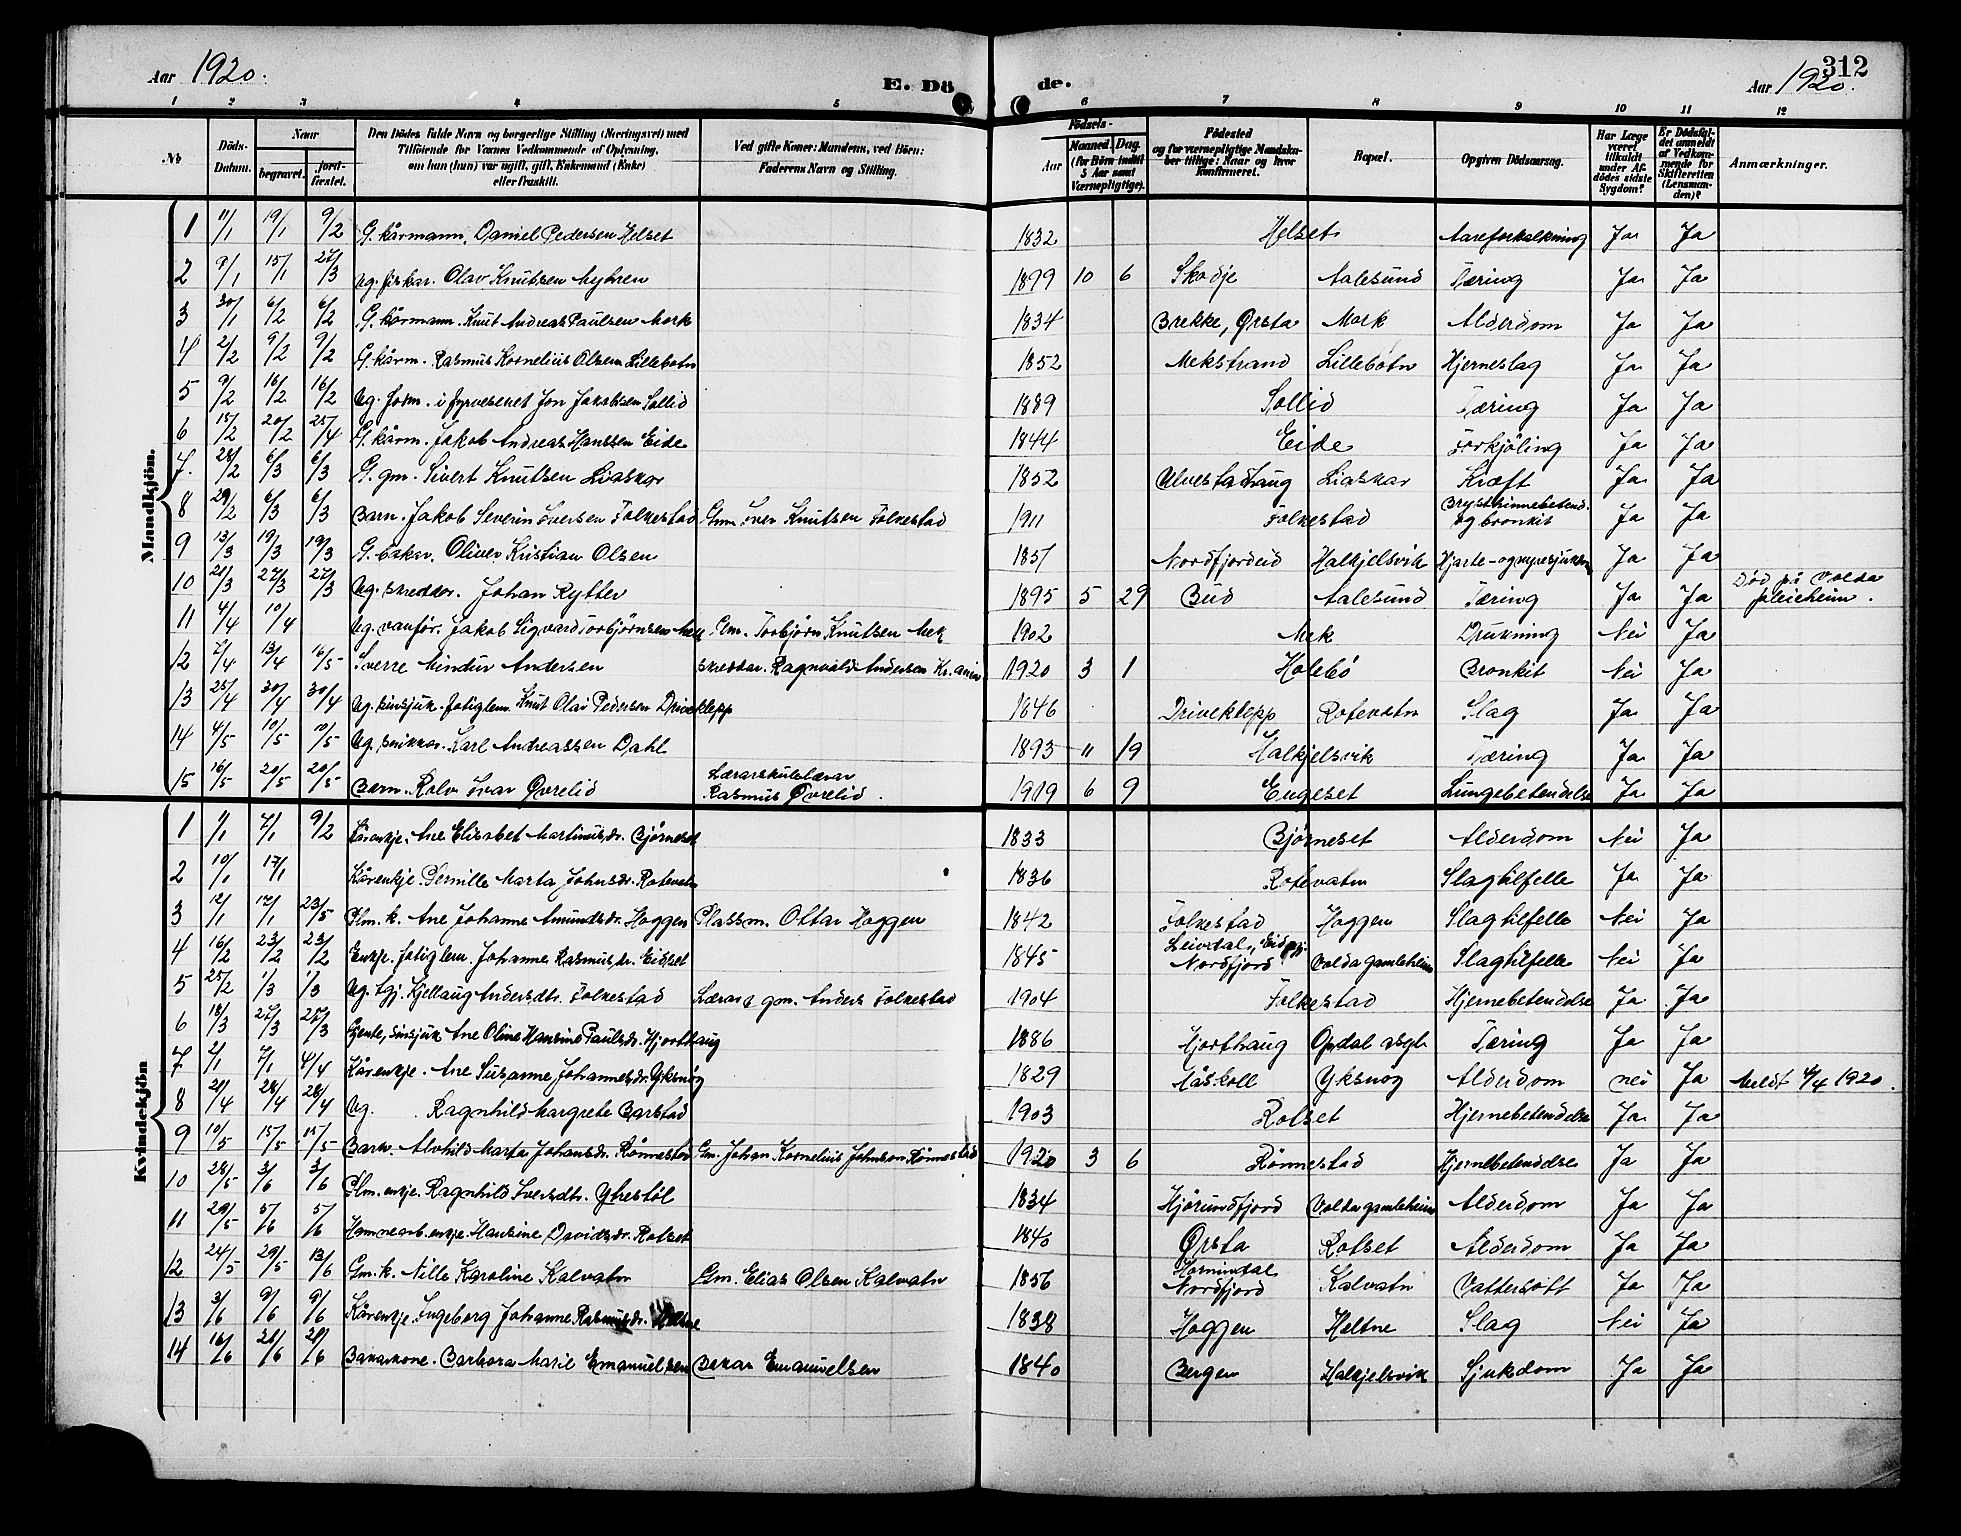 Aar 1920. E. Dö
de. Aar 1920. 312
1 2 3 4 5 6 7 8 9 10 11 12
№ Döds-Datum. Naar begravet. jordfæstet. Den Dödes fulde Navn og borgerlige Stilling (Næringsvei) med Tilföiende for Voxnes Vedkommende af Oplysning, om han (hun) var ugift, gift, Enkemand (Enke) eller fraskilt. Ved gifte Koner: Mandens, ved Börn: Faderens Navn og Stilling. Födsels- Aar Maaned. Dag. (for Börn indtil 5 Aar samt Værnepligtige). Födested og for værnepligtige Mandskaber tillige: Naar og hvor konfirmeret. Bopæl. Opgiven Dödsaarsag. Har Læge været tilkaldt under Afdödes sidste Sygdom? Er Dödsfaldet anmeldt af Vedkommende for Skifteretten (Lensmanden)? Anmærkninger.
Mandkjön.
1 11/1 19/1 9/2 G. kårmann. Daniel Pedersen Helset 1832 Helset Aareforkalkning Ja Ja
2 9/1 15/1 27/3 Ug. fiskar. Olav Knutsen Myhren 1899 10 6 Skodje Aalesund Tæring Ja Ja
3 30/1 6/2 6/2 G. kårmann. Knut Andreas Paulsen Mork 1834 Brekke, Ørsta Mork Alderdom Ja Ja
4 2/2 9/2 9/2 G. kårm. Rasmus Kornelius Olsen Lillebotn 1852 Mekstrand Lillebotn Hjerneslag Ja Ja
5 9/2 16/2 16/2 Ug. form. i fyrvesenet Jon Jakobsen Sollid 1889 Sollid Tæring Ja Ja
6 15/2 20/2 25/4 G. kårm. Jakob Andreas Hanssen Eide 1844 Eide Forkjöling Ja Ja
7. 28/2 6/3 6/3 G. gm. Sivert Knutsen Liaskar 1852 Ulvestadhaug Liaskar Kræft Ja Ja
8 29/2 6/3 6/3 Barn. Jakob Severin Iversen Folkestad Gm. Iver Knutsen Folkestad 1911 Folkestad Brysthinnebetend. og bronkit Ja Ja
9 13/3 19/3 19/3 G. bakar. Oliver Kristian Olsen 1857 Nordfjordeid Halkjelsvik Hjarte- og nyresjukdom Ja Ja
10 21/3 27/3 27/3 Ug. skreddar. Johan Rytter 1895 5 29 Bud Aalesund Tæring Ja Ja Död på Volda pleieheim.
11 4/4 10/4 Ug. vanför. Jakob Sigvard Torbjørnsen Mek Gm. Torbjørn Knutsen Mek 1902 Mek Drukning Nei Ja
12 7/4 13/4 16/5 Sverre Mindur Andersen skreddar. Ragnvald Andersen Kr.ania 1920 3 1 Holebö Bronkit Nei Ja
13 25/4 30/4 30/4 Ug. sinsjuk. fatiglem. Knut Olai Pedersen Driveklepp 1846 Driveklepp Rotevatn Slag Ja Ja
14 4/5 10/5 10/5 Ug. snikkar. Karl Andreassen Dahl 1893 11 19 Halkjelsvik Tæring Ja Ja
15 16/5 20/5 20/5 Barn. Rolv Ivar Øvrelid Lærarskulelærar Rasmus Øvrelid. 1919 6 9 Engeset Lungebetendelse Ja Ja
Kvindekjön
1 1/1 7/1 9/2 Kårenkje. Ane Elisabet Martinusdr. Bjørneset 1833 Bjørneset Alderdom Nei Ja
2 10/1 17/1 Kårenkje. Pernille Marta Johnsdr. Rotevatn 1836 Rotevatn Slagtilfelle Ja Ja
3 12/1 17/1 23/5 Plm. k. Ane Johanne Amundsdr. Hoggen Plassm. Ottar Hoggen 1842 Folkestad Hoggen Slagtilfelle Nei Ja
4 16/2 23/2 23/2 Enkje. fatiglem. Johanne Rasmusdr. Eidset 1845 Leivdal, Eid pgj. Nordfjord Volda gamleheim Slagtilfelle Nei Ja
5 25/2 1/3 1/3 Ug. tgj. Kjellaug Andersdtr. Folkestad Lærar g gm. Anders Folkestad 1904 Folkestad Hjernebetendelse Ja Ja
6 18/3 27/3 27/3 Gjente, sinsjuk Ane Oline Hansine Paulsdr. Hjorthaug 1886 Hjorthaug Opdal asyl Tæring Ja Ja
7. 2/1 7/1 4/4 Kårenkje. Ane Susanne Johannesdr. Yksnöy 1829 Håskoll Yksnöy Alderdom nei Ja Meldt 4/4 1920.
8 21/4 28/4 28/4 Ug. Ragnhild Margrete Barstad 1903 Rotset Hjernebetendelse Ja Ja
9 10/5 15/5 15/5 Barn. Alvhild Marta Johansdr. Rönnestad Gm. Johan Kornelius Johnson Rönnestad 1920 3 6 Rönnestad Hjernebetendelse Ja Ja
10 28/5 3/6 3/6 Plm. enkje. Ragnhild Iversdtr. Ytrestöl 1834 Hjörundfjord Volda gamleheim Alderdom Ja Ja
11 29/5 5/6 5/6 Hamnearb. enkje Hansine Davidsdr. Rotset 1840 Ørsta Rotset Alderdom Ja Ja
12 24/5 29/5 13/6 Gm. k. Nille Karoline Kalvatn Gm. Elias Olsen Kalvatn 1856 Hornindal Nordfjord Kalvatn Vattersott Ja Ja
13 3/6 9/6 9/6 Kårenkje Ingeborg Johanne Rasmusdr. 1838 Hoggen Heltne Slag Nei Ja
14 16/6 21/6 21/6 Bakarkone. Barbora Marie Emanuelsen Bakar Emanuelsen 1840 Bergen Halkjelsvik Sjukdom Ja Ja